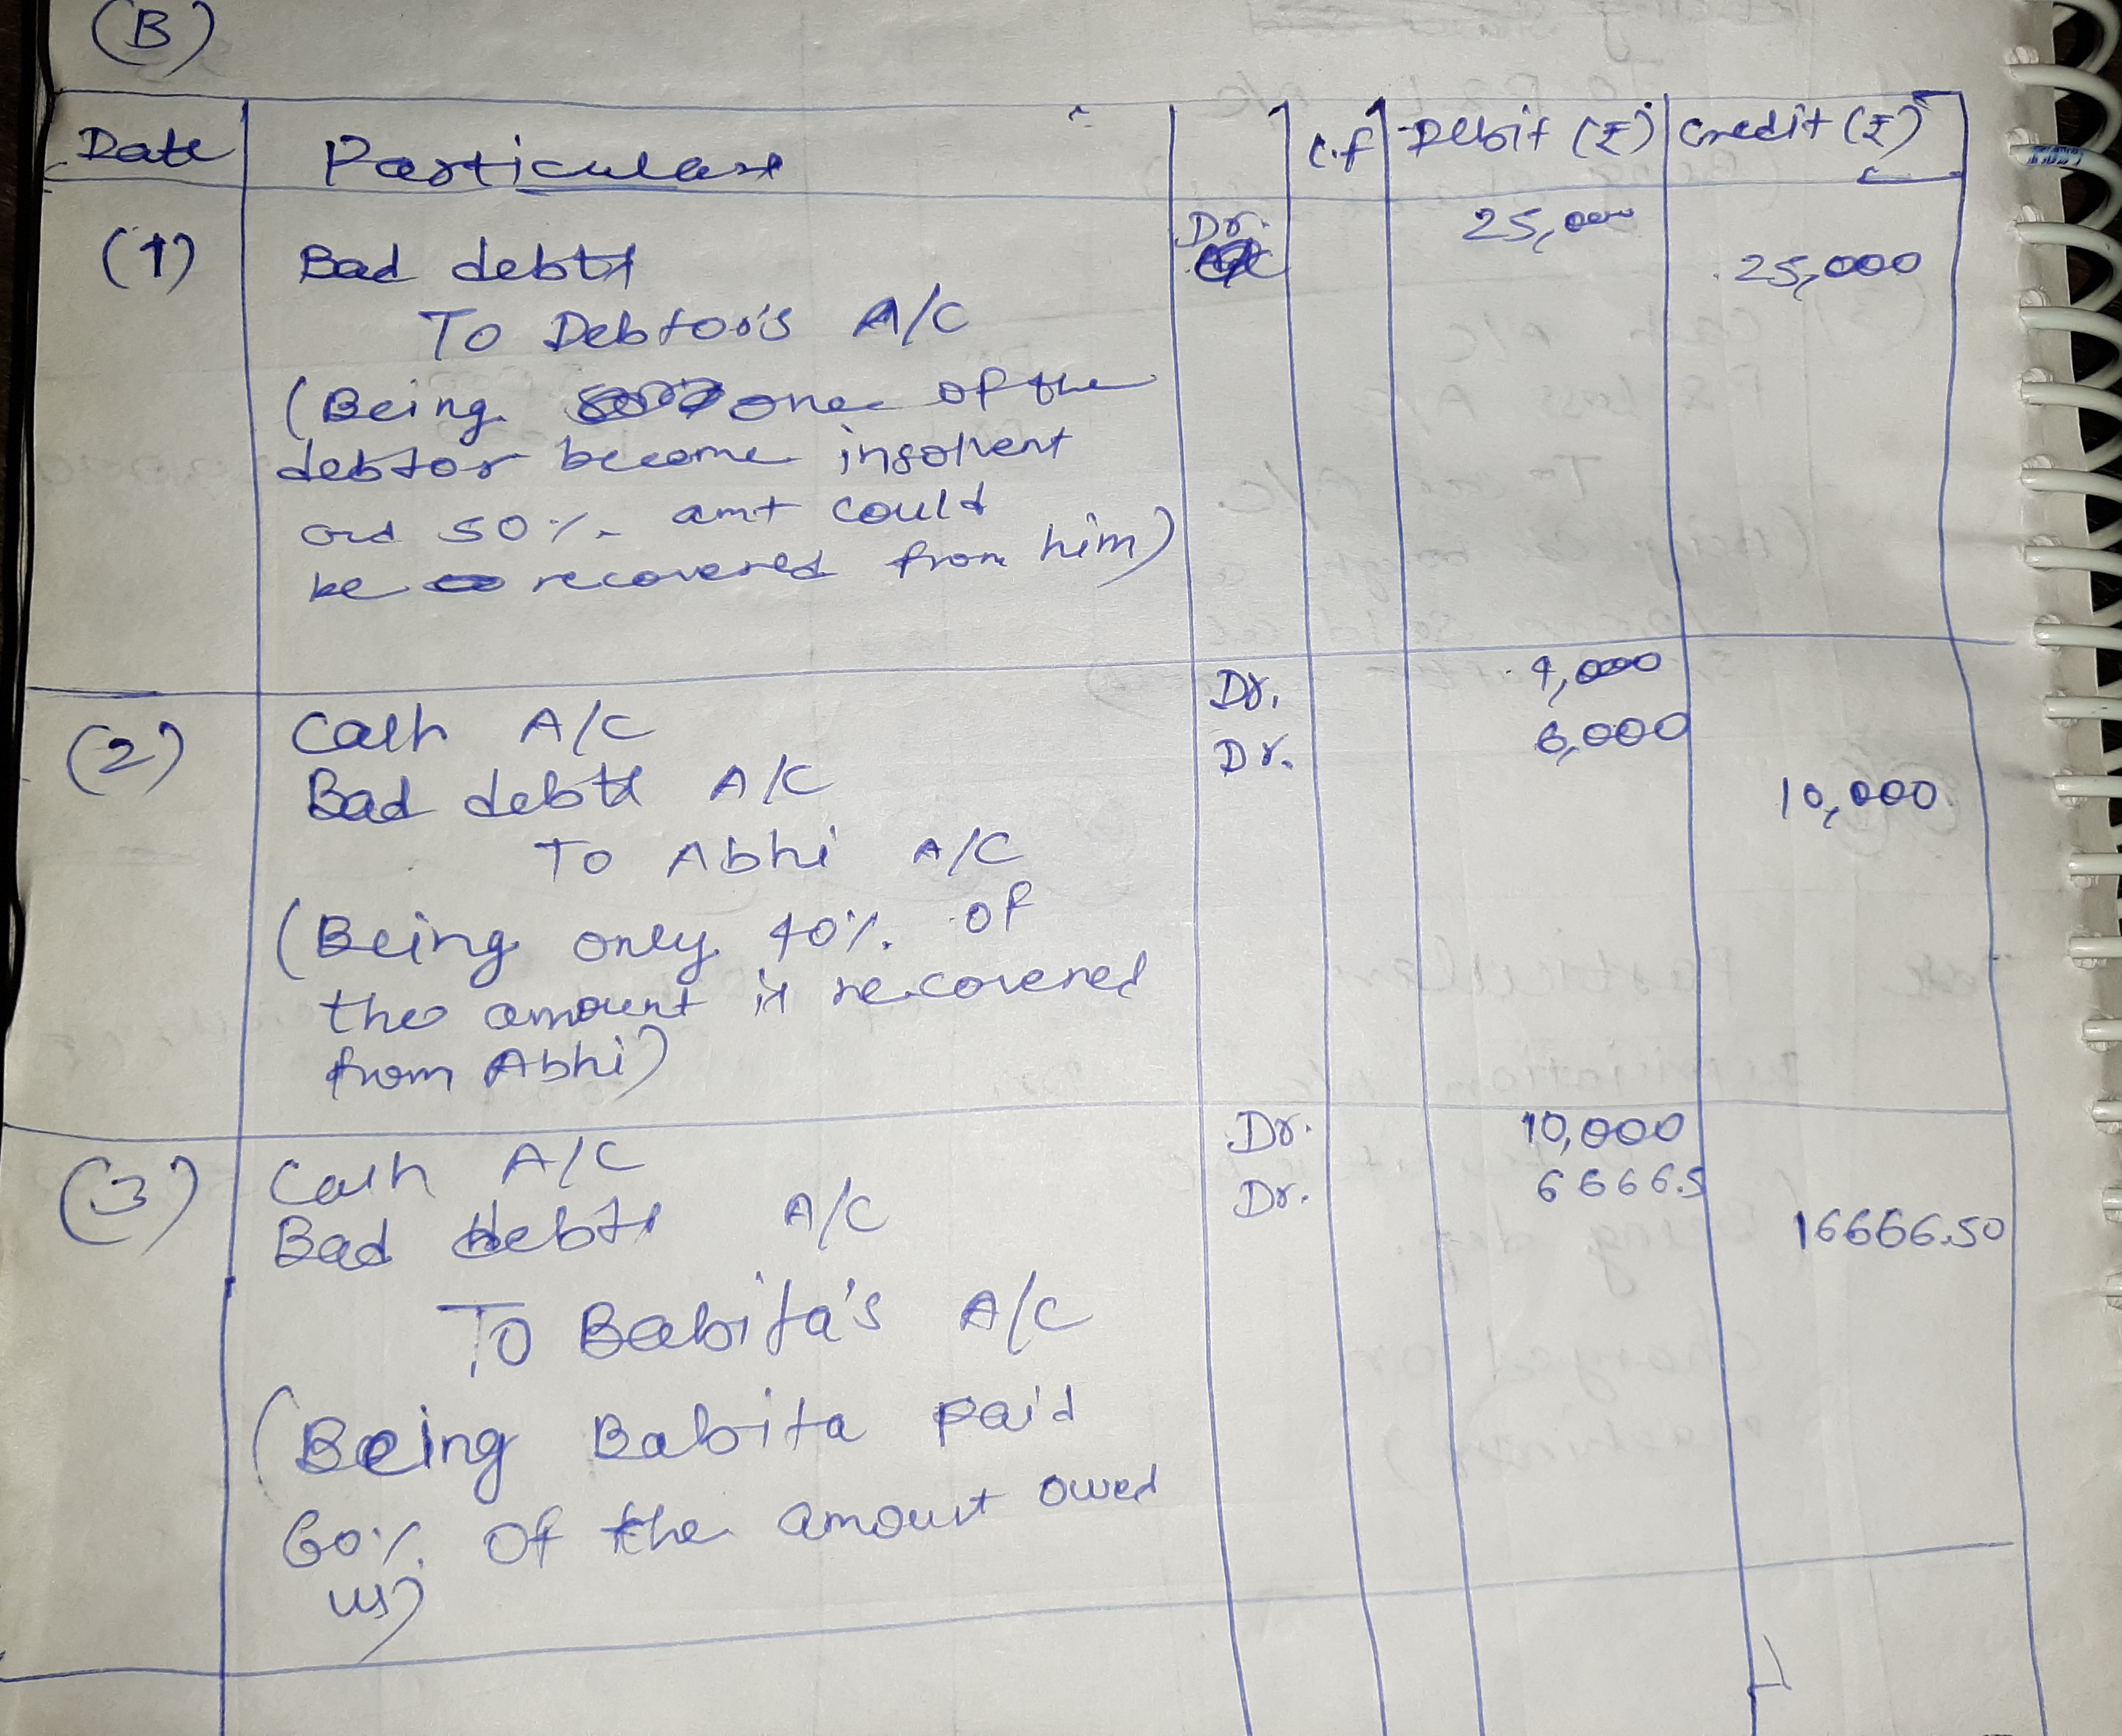 (B)
Date Particulars C.f Debit (₹) Credit (₹)
(1) Bad debts Dr. 25,000
25,000
To Debtor's A/C
(Being one of the
debtor become insolvent
and 50% amt could
be recovered from him)
(2) Cash A/C Dr. 4,000
Bad debts A/C Dr. 6,000
To Abhi A/C 10,000
(Being only 40% of
the amount is recovered
from Abhi)
(3) Cash A/C Dr. 10,000
Bad debts A/C Dr. 6666.5
To Babita's A/C 16666.50
(Being Babita paid
60% of the amount owed
us)